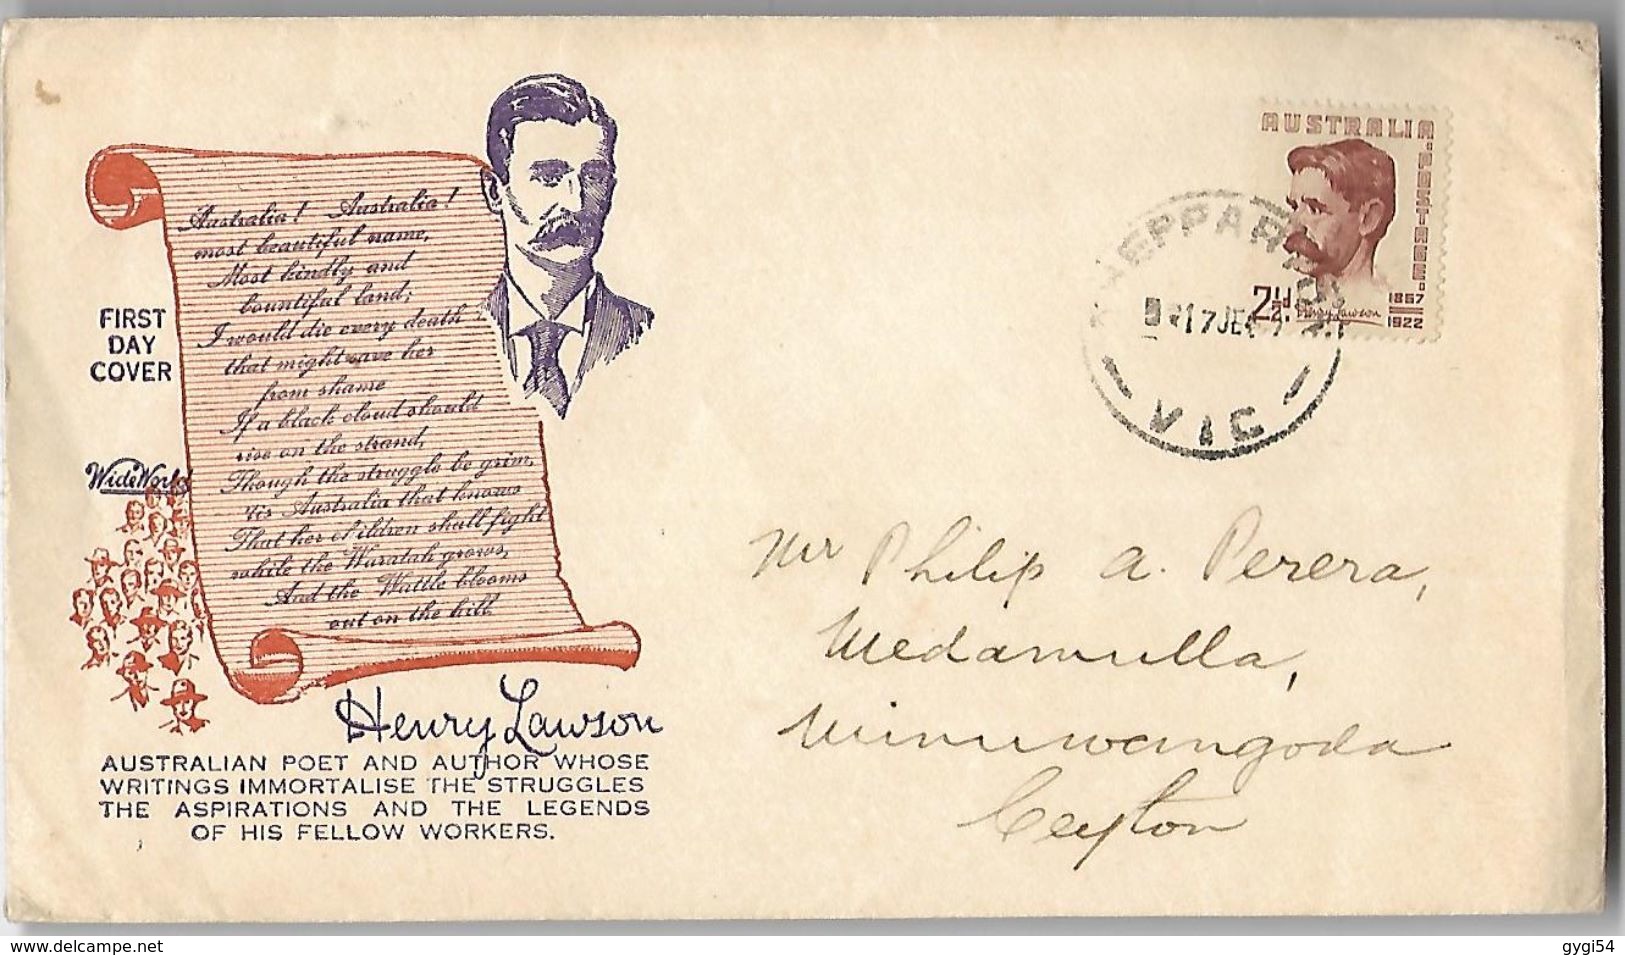 Australia! Australia!
most beautiful name,
Most kindly and
bountiful land;
I would die every death
that might save her
from shame
If a black cloud should
rise on the strand,
Though the struggle be grim,
'tis Australia that knows
That her children shall fight
while the Waratah grows,
And the Wattle blooms
out on the hill
FIRST
DAY
COVER
Wide World
Henry Lawson
AUSTRALIAN POET AND AUTHOR WHOSE
WRITINGS IMMORTALISE THE STRUGGLES
THE ASPIRATIONS AND THE LEGENDS
OF HIS FELLOW WORKERS.
AUSTRALIA
POSTAGE
2½d
Henry Lawson
1867
1922
17 JE
VIC
Mr Philip A. Perera,
Medamulla,
Minuwangoda
Ceylon
www.delcampe.net
gygi54